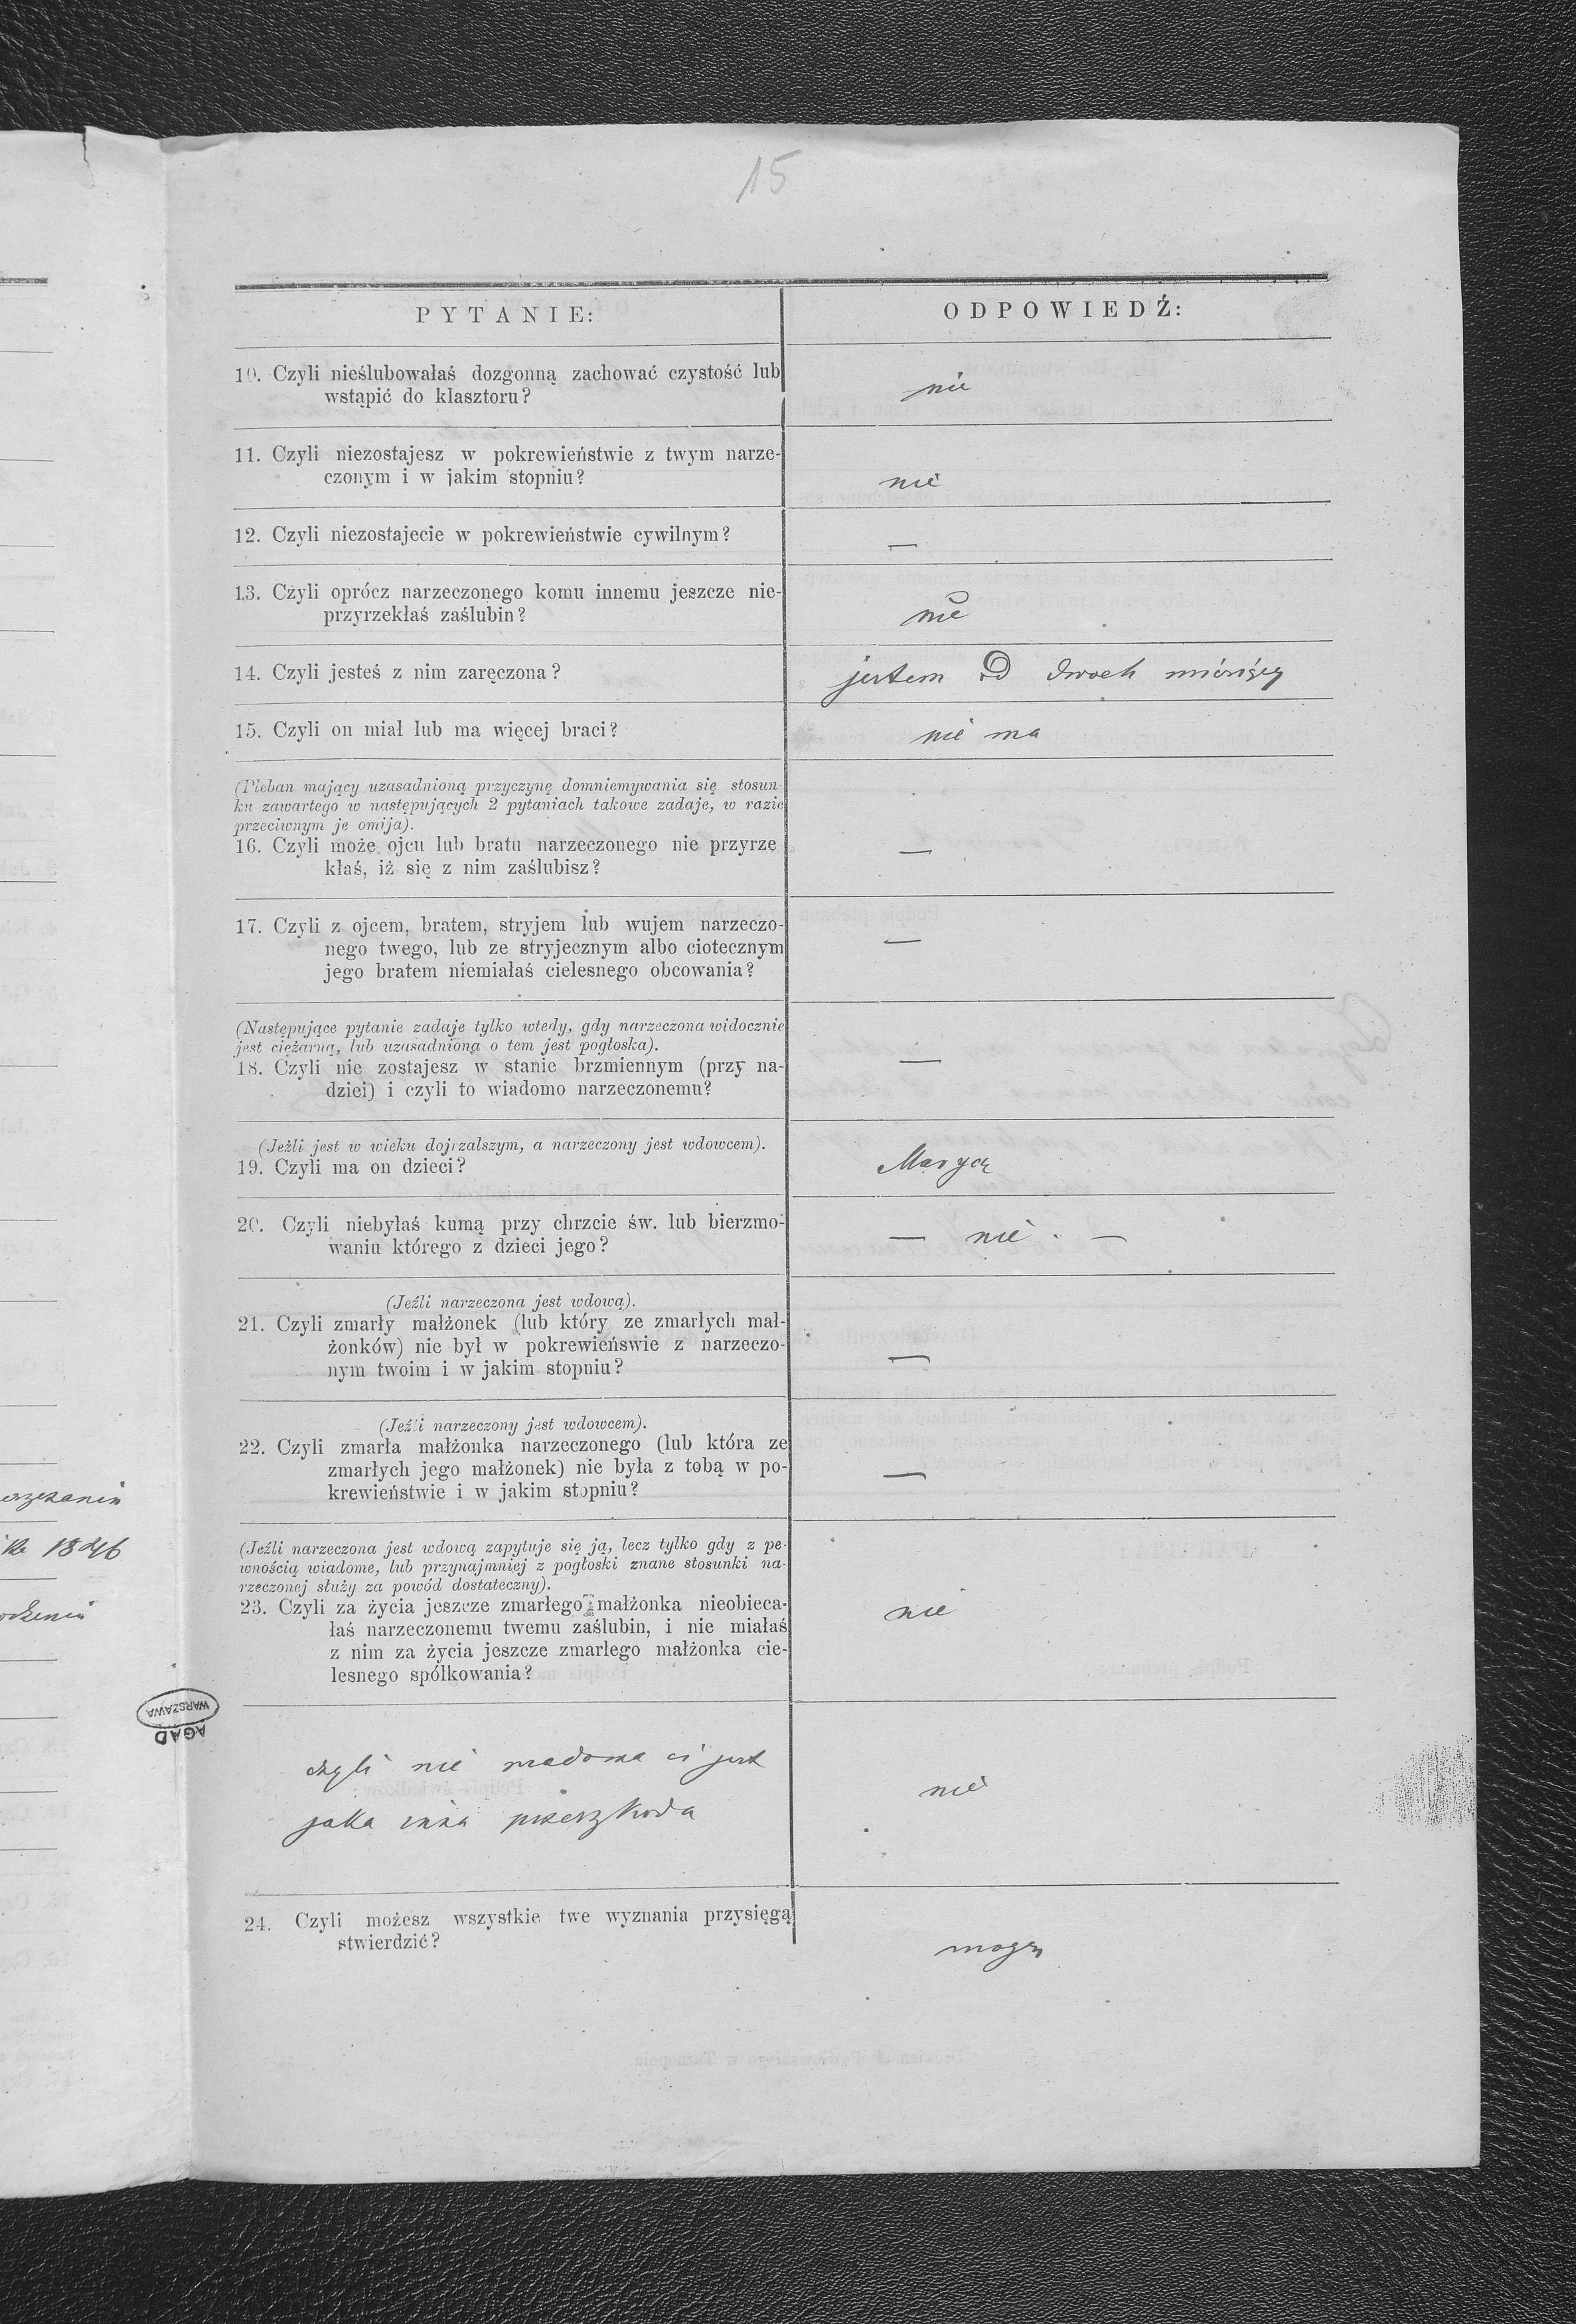 15
PYTANIE:
ODPOWIEDŹ:
10. Czyli nieślubowałaś dozgonną zachować czystość lub
wstąpić do klasztoru?
nie
11. Czyli niezostajesz w pokrewieństwie z twym narze-
czonym i w jakim stopniu?
nie
12. Czyli niezostajecie w pokrewieństwie cywilnym?
—
13. Czyli oprócz narzeczonego komu innemu jeszcze nie-
przyrzekłaś zaślubin?
nie
14. Czyli jesteś z nim zaręczona?
jestem od dwoch miesięcy
15. Czyli on miał lub ma więcej braci?
nie ma
(Pleban mający uzasadnioną przyczynę domniemywania się stosun-
ku zawartego w następujących 2 pytaniach takowe zadaje, w razie
przeciwnym je omija).
16. Czyli może ojcu lub bratu narzeczonego nie przyrze
kłaś, iż się z nim zaślubisz?
—
17. Czyli z ojcem, bratem, stryjem lub wujem narzeczo-
nego twego, lub ze stryjecznym albo ciotecznym
jego bratem niemiałaś cielesnego obcowania?
—
(Następujące pytanie zadaje tylko wtedy, gdy narzeczona widocznie
jest ciężarną, lub uzasadniona o tem jest pogłoska).
18. Czyli nie zostajesz w stanie brzmiennym (przy na-
dziei) i czyli to wiadomo narzeczonemu?
—
(Jeżli jest w wieku dojrzalszym, a narzeczony jest wdowcem).
19. Czyli ma on dzieci?
20. Czyli niebyłaś kumą przy chrzcie św. lub bierzmo-
waniu którego z dzieci jego?
— nie . —
(Jeźli narzeczona jest wdową).
21. Czyli zmarły małżonek (lub który ze zmarłych mał-
żonków) nie był w pokrewieńswie z narzeczo-
nym twoim i w jakim stopniu?
—
(Jeźli narzeczony jest wdowcem).
22. Czyli zmarła małżonka narzeczonego (lub która ze
zmarłych jego małżonek) nie była z tobą w po-
krewieństwie i w jakim stopniu?
—
(Jeźli narzeczona jest wdową zapytuje się ją, lecz tylko gdy z pe-
wnością wiadome, lub przynajmniej z pogłoski znane stosunki na-
rzeczonej służy za powód dostateczny).
23. Czyli za życia jeszcze zmarłego małżonka nieobieca-
łaś narzeczonemu twemu zaślubin, i nie miałaś
z nim za życia jeszcze zmarłego małżonka cie-
lesnego spółkowania?
nie
czyli nie wiadoma ci jest
jaka inna przeszkoda
nie
24. Czyli możesz wszystkie twe wyznania przysięgą
stwierdzić?
mogę
1846
AGAD
WARSZAWA